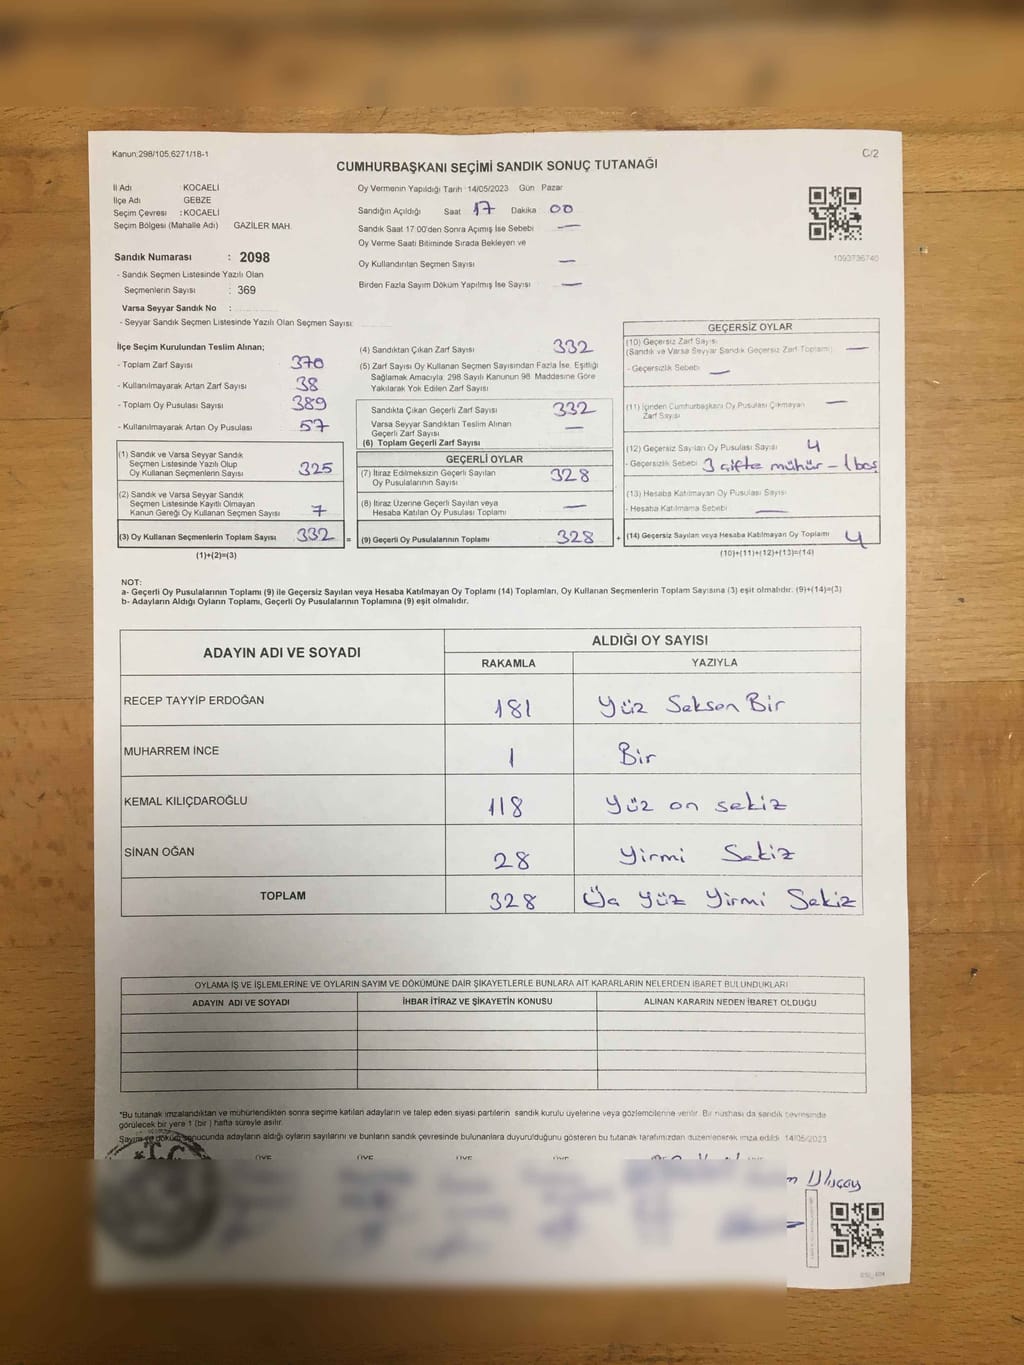 Kanun:298/105,6271/18-1
C/2
CUMHURBAŞKANI SEÇİMİ SANDIK SONUÇ TUTANAĞI
İl Adı : KOCAELİ
İlçe Adı GEBZE
Seçim Çevresi : KOCAELİ
Seçim Bölgesi (Mahalle Adı) GAZİLER MAH.
Sandık Numarası : 2098
- Sandık Seçmen Listesinde Yazılı Olan
Seçmenlerin Sayısı : 369
Varsa Seyyar Sandık No :
- Seyyar Sandık Seçmen Listesinde Yazılı Olan Seçmen Sayısı:
Oy Vermenin Yapıldığı Tarih 14/05/2023 Gün Pazar
Sandığın Açıldığı Saat 17 Dakika 00
Sandık Saat 17:00'den Sonra Açımış İse Sebebi —
Oy Verme Saati Bitiminde Sırada Bekleyen ve
Oy Kullandırılan Seçmen Sayısı —
Birden Fazla Sayım Döküm Yapılmış İse Sayısı —
1093736740
İlçe Seçim Kurulundan Teslim Alınan;
- Toplam Zarf Sayısı 370
- Kullanılmayarak Artan Zarf Sayısı 38
- Toplam Oy Pusulası Sayısı 389
- Kullanılmayarak Artan Oy Pusulası 57
(1) Sandık ve Varsa Seyyar Sandık
Seçmen Listesinde Yazılı Olup
Oy Kullanan Seçmenlerin Sayısı 325
(2) Sandık ve Varsa Seyyar Sandık
Seçmen Listesinde Kayıtlı Olmayan
Kanun Gereği Oy Kullanan Seçmen Sayısı 7
(3) Oy Kullanan Seçmenlerin Toplam Sayısı 332 =
(1)+(2)=(3)
(4) Sandıktan Çıkan Zarf Sayısı 332
(5) Zarf Sayısı Oy Kullanan Seçmen Sayısından Fazla İse, Eşitliği
Sağlamak Amacıyla, 298 Sayılı Kanunun 98. Maddesine Göre
Yakılarak Yok Edilen Zarf Sayısı
Sandıkta Çıkan Geçerli Zarf Sayısı 332
Varsa Seyyar Sandıktan Teslim Alınan
Geçerli Zarf Sayısı —
(6) Toplam Geçerli Zarf Sayısı
GEÇERLİ OYLAR
(7) İtiraz Edilmeksizin Geçerli Sayılan
Oy Pusulalarının Sayısı 328
(8) İtiraz Üzerine Geçerli Sayılan veya
Hesaba Katılan Oy Pusulası Toplamı —
(9) Geçerli Oy Pusulalarının Toplamı 328 +
GEÇERSİZ OYLAR
(10) Geçersiz Zarf Sayısı
(Sandık ve Varsa Seyyar Sandık Geçersiz Zarf Toplamı) —
- Geçersizlik Sebebi —
(11) İçinden Cumhurbaşkanı Oy Pusulası Çıkmayan
Zarf Sayısı —
(12) Geçersiz Sayılan Oy Pusulası Sayısı 4
- Geçersizlik Sebebi 3 çifte mühür - 1 boş
(13) Hesaba Katılmayan Oy Pusulası Sayısı
- Hesaba Katılmama Sebebi —
(14) Geçersiz Sayılan veya Hesaba Katılmayan Oy Toplamı 4
(10)+(11)+(12)+(13)=(14)
NOT:
a- Geçerli Oy Pusulalarının Toplamı (9) ile Geçersiz Sayılan veya Hesaba Katılmayan Oy Toplamı (14) Toplamları, Oy Kullanan Seçmenlerin Toplam Sayısına (3) eşit olmalıdır. (9)+(14)=(3)
b- Adayların Aldığı Oyların Toplamı, Geçerli Oy Pusulalarının Toplamına (9) eşit olmalıdır.
ADAYIN ADI VE SOYADI ALDIĞI OY SAYISI
RAKAMLA YAZIYLA
RECEP TAYYİP ERDOĞAN 181 Yüz Seksen Bir
MUHARREM İNCE 1 Bir
KEMAL KILIÇDAROĞLU 118 Yüz on sekiz
SİNAN OĞAN 28 Yirmi Sekiz
TOPLAM 328 Üç Yüz Yirmi Sekiz
OYLAMA İŞ VE İŞLEMLERİNE VE OYLARIN SAYIM VE DÖKÜMÜNE DAİR ŞİKAYETLERLE BUNLARA AİT KARARLARIN NELERDEN İBARET BULUNDUKLARI
ADAYIN ADI VE SOYADI İHBAR İTİRAZ VE ŞİKAYETİN KONUSU ALINAN KARARIN NEDEN İBARET OLDUĞU
*Bu tutanak imzalandıktan ve mühürlendikten sonra seçime katılan adayların ve talep eden siyasi partilerin sandık kurulu üyelerine veya gözlemcilerine verilir. Bir nüshası da sandık çevresinde
görülecek bir yere 1 (bir ) hafta süreyle asılır.
Sayım ve döküm sonucunda adayların aldığı oyların sayılarını ve bunların sandık çevresinde bulunanlara duyurulduğunu gösteren bu tutanak tarafımızdan düzenlenerek imza edildi. 14/05/2023
ÜYE ÜYE ÜYE ÜYE